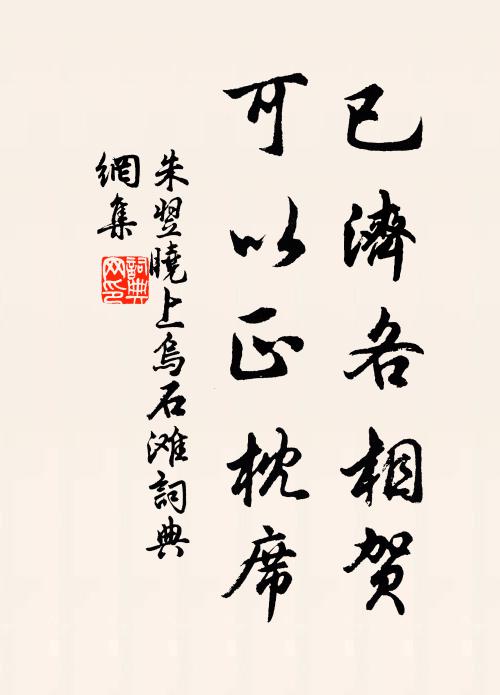 已濟各相贺
可以正枕席
朱翌曉上烏石滩詞典
網集
詞典
网印